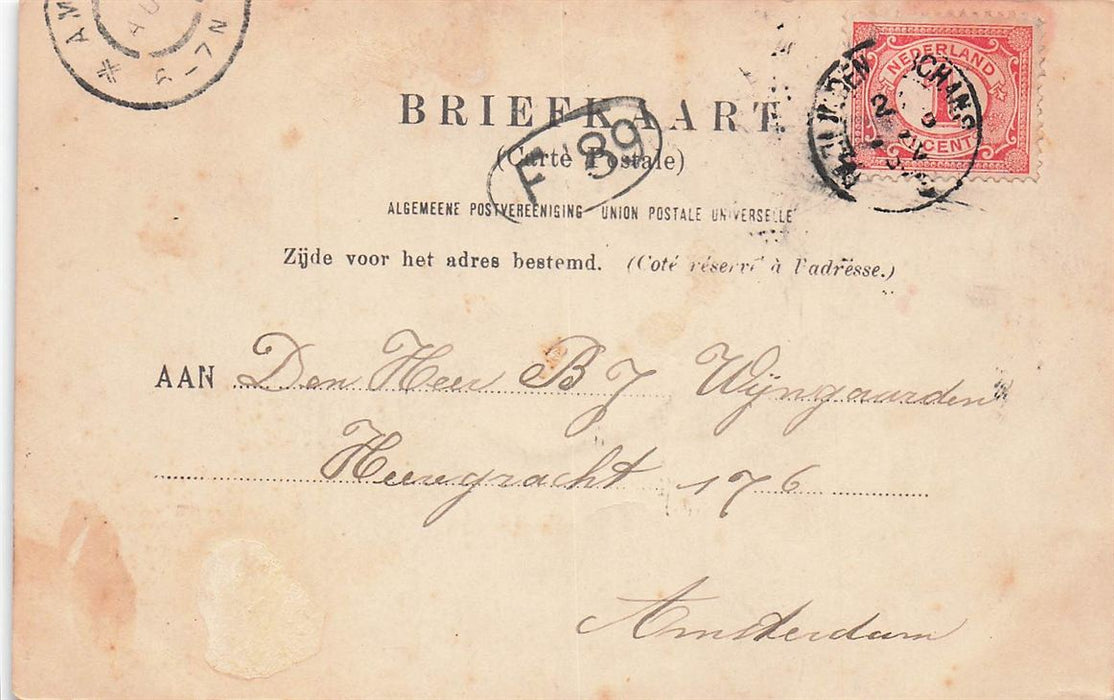 AM
AU
6-7N
NEDERLAND
1
CENT
BRIEFKAART
(Carte Postale)
F 89
ALGEMEENE POSTVEREENIGING UNION POSTALE UNIVERSELLE
Zijde voor het adres bestemd. (Coté réservé à l'adresse.)
AAN Den Heer B J Wijngaarden
Heeregracht 176
Amsterdam